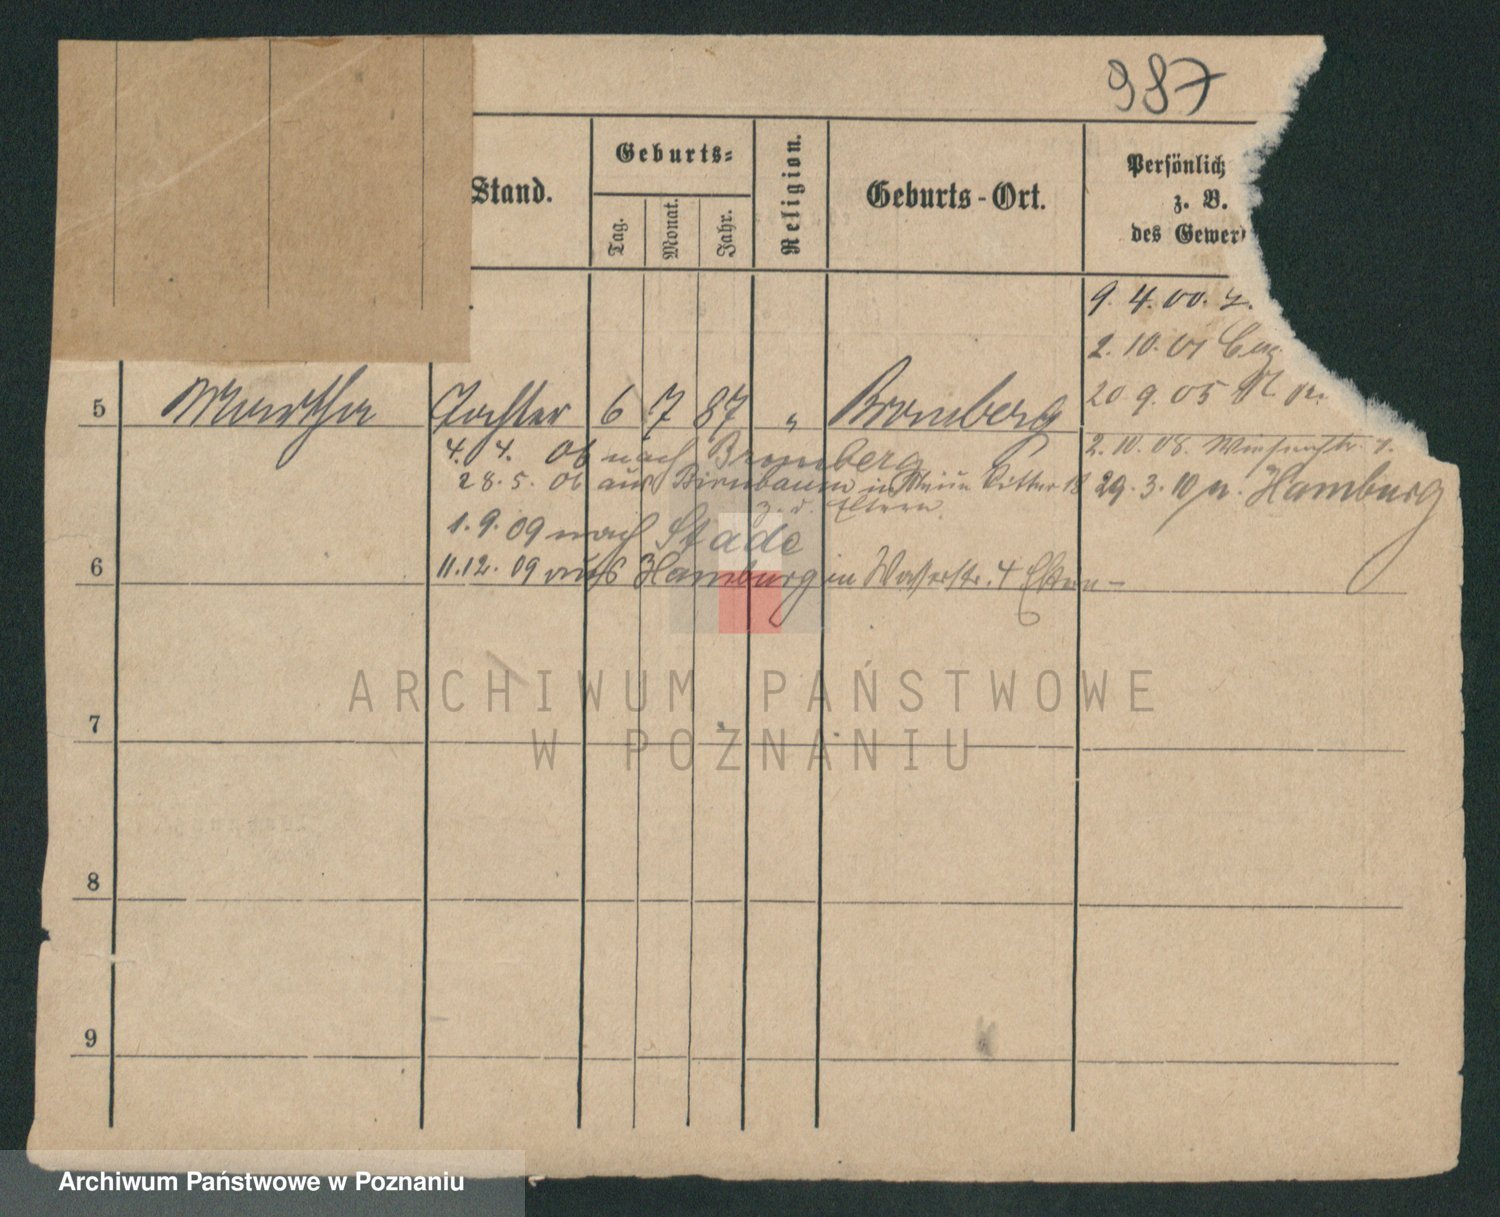 987
Stand.
Geburts=
Tag.
Monat.
Jahr.
Religion.
Geburts-Ort.
Persönlich
z. B.
des Gewer
9. 4. 00.
2. 10. 01
20 9. 05
5 Martha Tochter 6 7 87 " Bromberg
2. 10. 08.
4. 4. 06 nach Bromberg
28. 5. 06 aus Birnbaum in Ritter 18
29. 3. 10 n. Hamburg
z. d. Eltern.
1. 9. 09 nach Stade
6
11. 12. 09 aus Hamburg in Wasserstr. 4 Eltern
7
8
9
ARCHIWUM PAŃSTWOWE
W POZNANIU
Archiwum Państwowe w Poznaniu